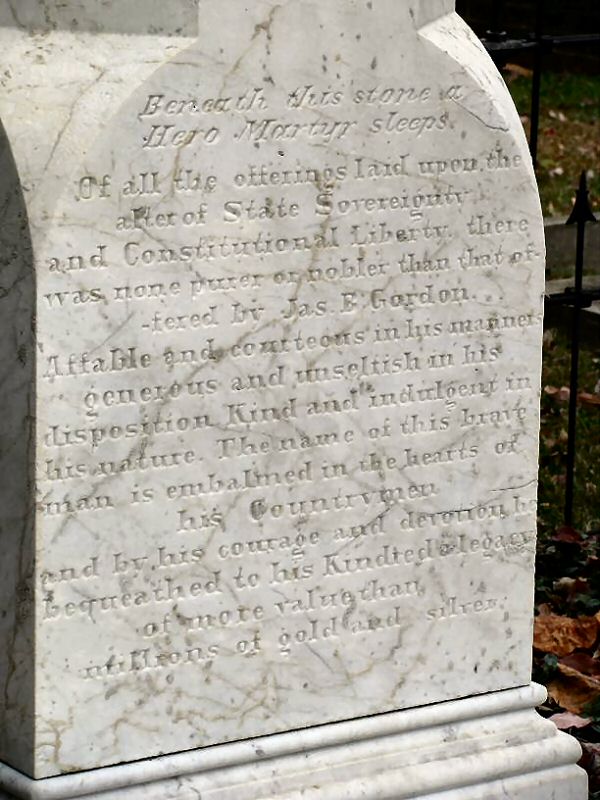 Beneath this stone a
Hero Martyr sleeps.
Of all the offerings laid upon the
alter of State Sovereignty
and Constitutional Liberty, there
was none purer or nobler than that of-
-fered by Jas. B. Gordon...
Affable and courteous in his manners
generous and unselfish in his
disposition Kind and indulgent in
his nature. The name of this brave
man is embalmed in the hearts of
his Countrymen
and by his courage and devotion he
bequeathed to his Kindred a legacy
of more value than
millions of gold and silver.